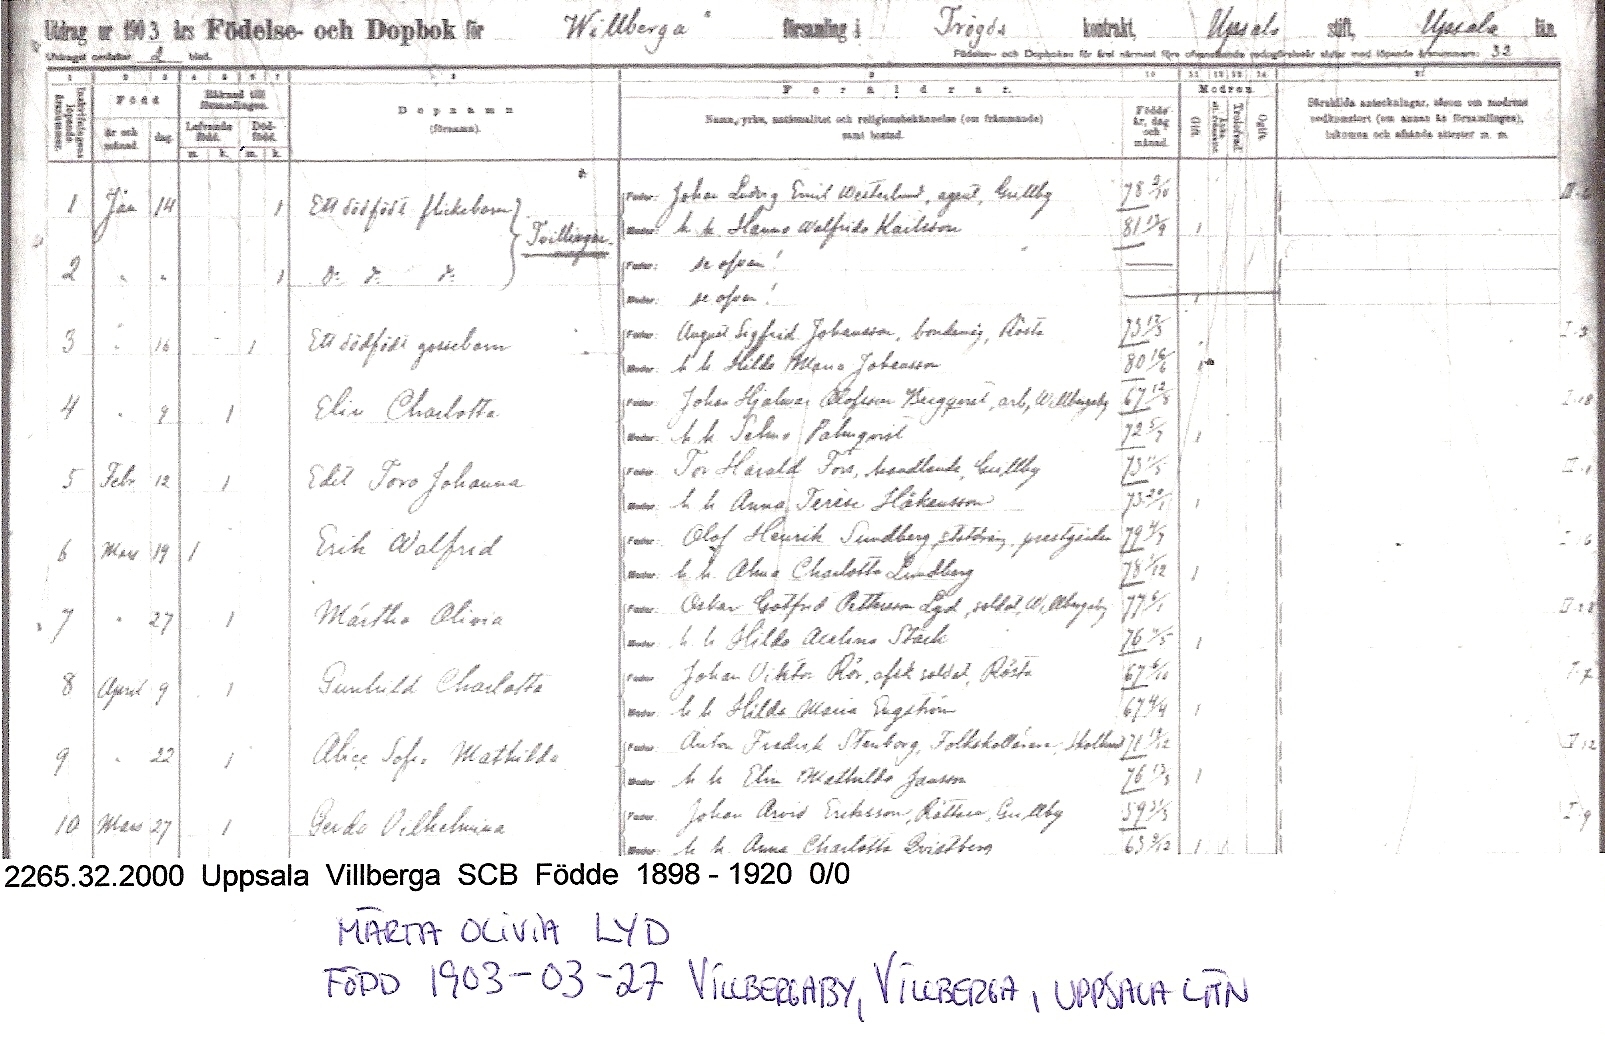 Utdrag ur 1903 års Födelse- och Dopbok för Willberga församling i Trögds kontrakt, Upsala stift, Upsala län.
Utdraget omfattar 2 blad.
Födelse- och Dopboken för året närmast före ofvanstående redogörelseår slutar med löpande årsnummer: 32
1 2 3 4 5 6 7 8 9 10 11 12 13 14 15
Född
Barnad till församlingen.
Dopnamn
(förnamn).
Föräldrar.
Namn, yrke, nationalitet och religionsbekännelse (om främmande)
samt bostad.
Födelse-
år, dag
och
månad.
Modren
Gift
Trolofvad
Ogift
Särskilda anteckningar, såsom om modrens
nedkomstort (om annan än församlingen),
inkomna och afsända attester m. m.
år och
månad.
dag.
Lefvande
född.
Död-
född.
m. k. m. k.
1 Jan 14 1 Ett dödfödt flickebarn Tvillingar Fader: Johan Ludvig Emil Westerlund, agent, Gullby 78
Moder: h. h. Hanna Walfrida Karlsson 81 1
2 " " 1 d:o d:o d:o Fader: se ofvan!
Moder: se ofvan! 1
3 " 16 1 Ett dödfödt gossebarn Fader: August Sigfrid Johansson, Rösta 73 I-3
Moder: h. h. Hilda Maria Johansson 80 1
4 " 9 1 Elin Charlotta Fader: Johan Hjalmar Olofsson Bergqvist, arb, Willbergaby 67
Moder: h. h. Selma Palmqvist 72 1
5 Febr. 12 1 Edit Tora Johanna Fader: Tor Harald Fors, handlande, Gullby 73 I-1
Moder: h. h. Anna Terese Håkansson 73 1
6 Mars 19 1 Erik Walfrid Fader: Olof Henrik Sundberg, prestgården 79
Moder: h. h. Alma Charlotta Lundberg 78 1
7 " 27 1 Märtha Olivia Fader: Oskar Gotfrid Pettersson Lyd, soldat, Willbergaby 77
Moder: h. h. Hilda Stark 76 1
8 April 9 1 Gunhild Charlotta Fader: Johan Viktor Rör, afsk. soldat, Rösta 67
Moder: h. h. Hilda Maria Engström 67 1
9 " 22 1 Alice Sofia Mathilda Fader: Anton Fredrik Stenborg, 71
Moder: h. h. Elin Mathilda Jansson 76 1
10 Mars 27 1 Gerda Vilhelmina Fader: Johan Arvid Eriksson, Rättare, Gullby 59 I-9
Moder: h. h. Anna Charlotta Qvistberg 63 1
2265.32.2000 Uppsala Villberga SCB Födde 1898 - 1920 0/0
MÄRTA OLIVIA LYD
FÖDD 1903-03-27 VILLBERGABY, VILLBERGA, UPPSALA LÄN